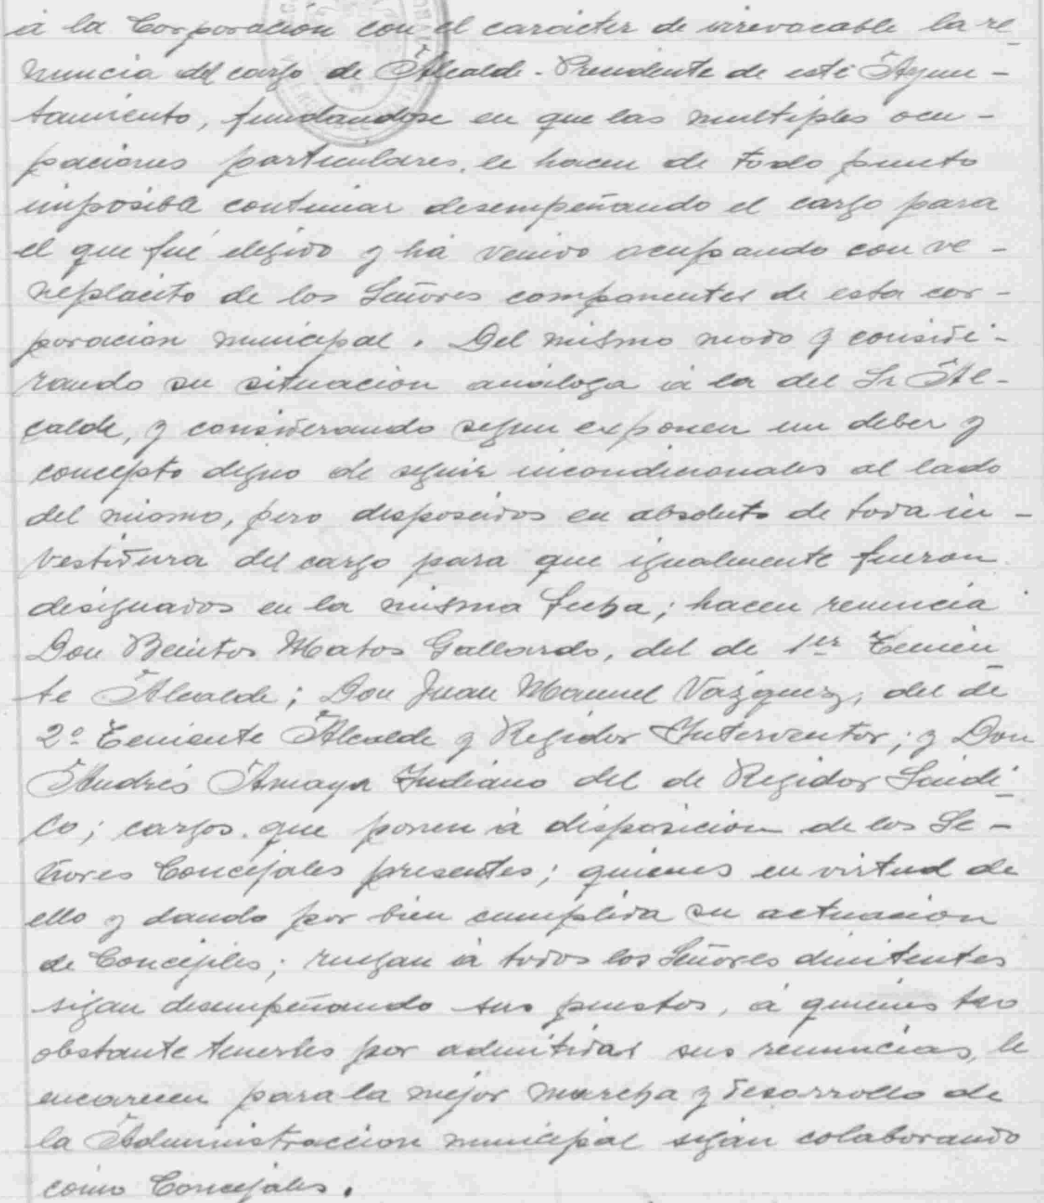 á la Corporación con el carácter de irrevocable la re-
nuncia del cargo de Alcalde-Presidente de este Ayun-
tamiento, fundandose en que las multiples ocu-
paciones particulares, le hacen de todo punto
imposible continuar desempeñando el cargo para
el que fué elegido y há venido ocupando con ve-
neplacito de los Señores componentes de esta cor-
poracion municipal. Del mismo modo y conside-
rando su situacion análoga á la del Sr Al-
calde, y considerando segun exponen un deber y
concepto digno de seguir incondicionales al lado
del mismo, pero desposeidos en absoluto de toda in-
vestidura del cargo para que igualmente fueron
designados en la misma fecha; hacen renuncia
Don Benito Matos Gallardo, del de 1er Tenien
te Alcalde; Don Juan Manuel Vazquez, del de
2º Teniente Alcalde y Regidor Interventor; y Don
Andrés Amaya Indiano del de Regidor Sindi-
co; cargos que ponen á disposicion de los Se-
ñores Concejales presentes; quienes en virtud de
ello y dando por bien cumplida su actuacion
de Concejales; ruegan á todos los Señores dimitentes
sigan desempeñando sus puestos, á quienes no
obstante tenerles por admitidas sus renuncias, le
encarecen para la mejor marcha y desarrollo de
la Administraccion municipal sigan colaborando
como Concejales.